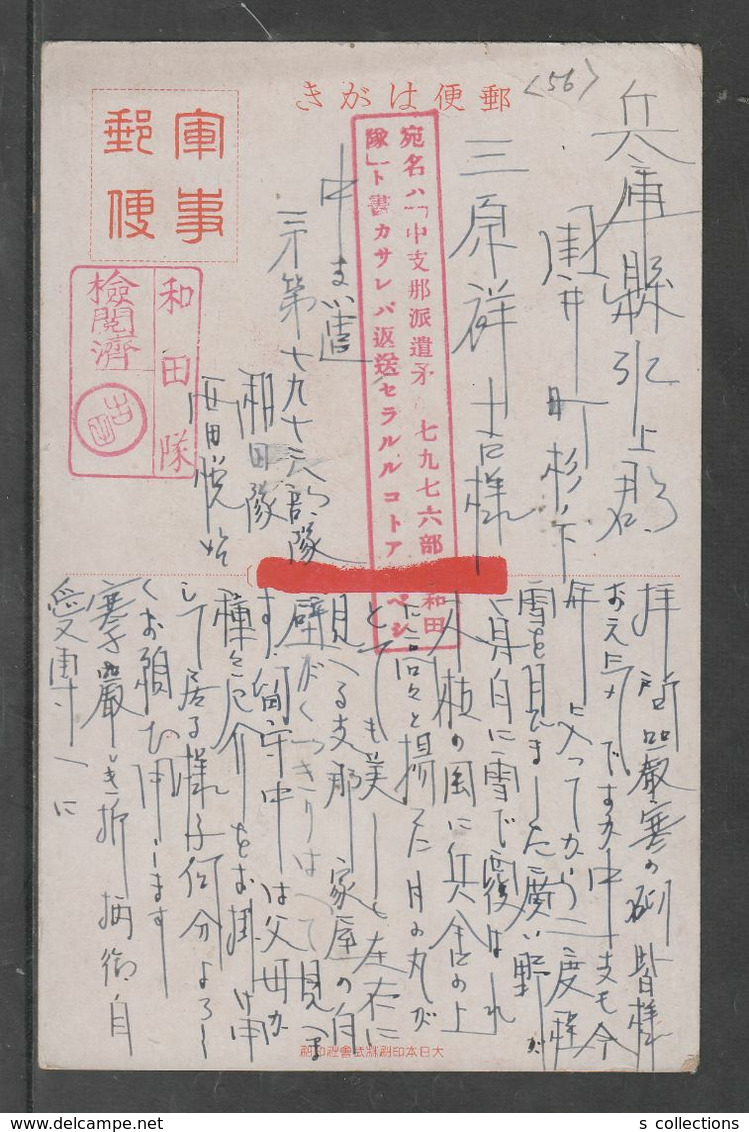 郵便はがき
軍事
郵便
和田隊
檢閲濟
<56>
兵庫縣氷上郡
町杉ノ下
三原祥吉様
宛名ハ「中支那派遣矛七九七六部 和田
隊」ト書カサレバ返送セラルルコトアルベシ
中支
第七九十六部隊
和田隊
西田悦治
拝啓 嚴寒の砌皆様
お元気ですか中支も今
年に入つてから二度程
雪を見ました廣い野が
一身白に雪で覆はれ
人枝の風に兵舎の上
に高々と揚つた日の丸が
とても美しと左右に
見へる支那家屋の白
壁がくつきりはへて見へま
す、留守中は父母が
種々厄介をお掛け申
して居る様子何分よろし
くお願ひ申します
寒さ嚴しき折柄御自
愛専一に
大日本印刷株式會社印刷
s collections